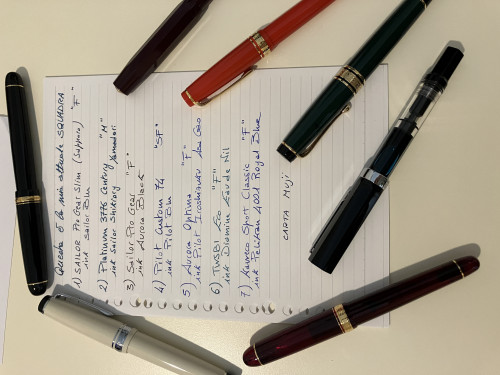 Questa è la mia attuale SQUADRA
1) SAILOR Pro Gear Slim (Sapporo) "F"
ink Sailor Blu
2) Platinum 3776 Century "M"
ink Sailor Shikiory Yamadori
3) Sailor Pro Gear "F"
ink Aurora Black
4) Pilot Custom 74 "SF"
ink Pilot Blu
5) Aurora Optima "F"
ink Pilot Iroshizuku
6) TWSBI Eco "F"
ink Diamine Eau de Nil
7) Kaweco Sport Classic "F"
ink Pelikan 4001 Royal Blue
CARTA Muji